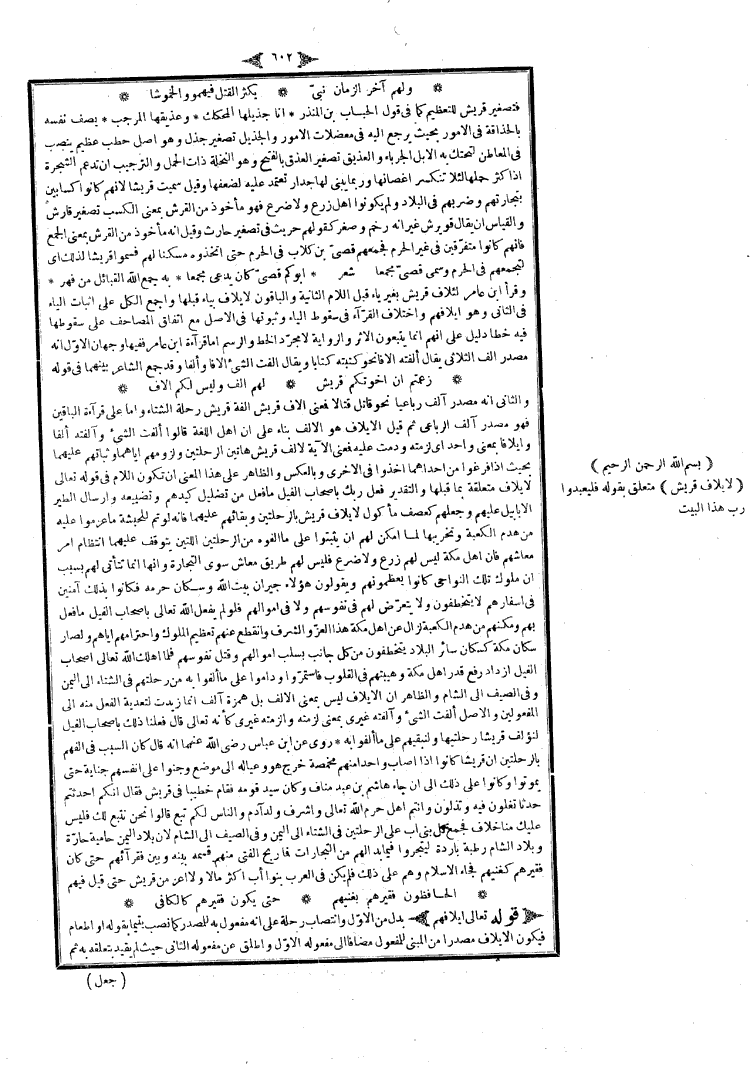 ٦٠٢
ولهم آخر الزمان نبىّ * يكثر القتل فيهمو والخموشا
فتصغير قريش للتعظيم كما فى قول الحباب بن المنذر * انا جذيلها المحكك * وعذيقها المرجب * يصف نفسه
بالحذاقة فى الامور بحيث يرجع اليه فى معضلات الامور والجذيل تصغير جذل وهو اصل حطب عظيم ينصب
فى المعاطن لتحتك به الابل الجرباء والعذيق تصغير العذق بالفتح وهو النخلة ذات الحمل والترجيب ان تدعم الشجرة
اذا كثر حملها لئلا تنكسر اغصانها وربما يبنى لها جدار تعتمد عليه لضعفها وقيل سميت قريشا لانهم كانوا كسابين
بتجارتهم وضربهم فى البلاد ولم يكونوا اهل زرع ولا ضرع فهو مأخوذ من القرش بمعنى الكسب تصغير قارش
والقياس ان يقال قويرش غير انه رخم وصغر كقولهم حريث فى تصغير حارث وقيل انه مأخوذ من القرش بمعنى الجمع
فانهم كانوا متفرّقين فى غير الحرم فجمعهم قصىّ بن كلاب فى الحرم حتى اتخذوه مسكنا لهم فسموا قريشا لذلك اى
لتجمعهم فى الحرم وسمى قصىّ مجمعا شعر * ابوكم قصىّ كان يدعى مجمعا * به جمع الله القبائل من فهر *
وقرأ ابن عامر لئلاف قريش بغير ياء قبل اللام الثانية والباقون لايلاف بياء قبلها واجمع الكل على اثبات الياء
فى الثانى وهو ايلافهم واختلاف القرّآء فى سقوط الياء وثبوتها فى الاصل مع اتفاق المصاحف على سقوطها
فيه خطا دليل على انهم انما يتبعون الاثر والرواية لا مجرّد الخط والرسم اما قرآءة ابن عامر ففيها وجهان الاوّل انه
مصدر الف الثلاثى يقال ألفته الافا نحو كتبته كتابا ويقال الفت الشئ الافا وألفا وقد جمع الشاعر بينهما فى قوله
* زعمتم ان اخوتكم قريش * لهم الف وليس لكم الاف
والثانى انه مصدر آلف رباعيا نحو قاتل قتالا فمعنى الاف قريش الفة قريش رحلة الشتاء واما على قرآءة الباقين
فهو مصدر آلف الرباعى ثم قيل الايلاف هو الالف بناء على ان اهل اللغة قالوا ألفت الشئ وآلفته ألفا
وايلافا بمعنى واحد اى لزمته ودمت عليه فمعنى الآية لالف قريش هاتين الرحلتين ولزومهم اياهما وثباتهم عليهما
بحيث اذا فرغوا من احداهما اخذوا فى الاخرى وبالعكس والظاهر على هذا المعنى ان تكون اللام فى قوله تعالى
لايلاف متعلقة بما قبلها والتقدير فعل ربك باصحاب الفيل ما فعل من تضليل كيدهم وتضييعه وارسال الطير
الابابيل عليهم وجعلهم كعصف مأكول لايلاف قريش بالرحلتين وبقائهم عليهما فانه لو تم للحبشة ما عزموا عليه
من هدم الكعبة وتخريبها لما امكن لهم ان يثبتوا على ما الفوه من الرحلتين اللتين يتوقف عليهما انتظام امر
معاشهم فان اهل مكة ليس لهم زرع ولا ضرع فليس لهم طريق معاش سوى التجارة وانها انما تتأتى لهم بسبب
ان ملوك تلك النواحى كانوا يعظمونهم ويقولون هؤلاء جيران بيت الله وسكان حرمه فكانوا بذلك آمنين
فى اسفارهم لا يتخطفون ولا يتعرّض لهم فى نفوسهم ولا فى اموالهم فلو لم يفعل الله تعالى باصحاب الفيل ما فعل
بهم ومكنهم من هدم الكعبة لزال عن اهل مكة هذا العز والشرف وانقطع عنهم تعظيم الملوك واحترامهم اياهم ولصار
سكان مكة كسكان سائر البلاد يتخطفون من كل جانب بسلب اموالهم وقتل نفوسهم فلما اهلك الله تعالى اصحاب
الفيل ازداد رفع قدر اهل مكة وهيبتهم فى القلوب فاستمرّوا وداموا على ما ألفوا به من رحلتهم فى الشتاء الى اليمن
وفى الصيف الى الشام والظاهر ان الايلاف ليس بمعنى الالف بل همزة آلف انما زيدت لتعدية الفعل منه الى
المفعولين والاصل ألفت الشئ وآلفته غيرى بمعنى لزمته والزمته غيرى كأنه تعالى قال فعلنا ذلك باصحاب الفيل
لنؤلف قريشا رحلتيها ولنبقيهم على ما ألفوا به * روى عن ابن عباس رضى الله عنهما انه قال كان السبب فى الفهم
بالرحلتين ان قريشا كانوا اذا اصاب واحدا منهم مخمصة خرج هو وعياله الى موضع وجنوا على انفسهم جناية حتى
يموتوا وكانوا على ذلك الى ان جاء هاشم بن عبد مناف وكان سيد قومه فقام خطيبا فى قريش فقال انكم احدثتم
حدثا تقلون فيه وتذلون وانتم اهل حرم الله تعالى واشرف ولد آدم والناس لكم تبع قالوا نحن نتبع لك فليس
عليك منا خلاف فجمع كل بنى اب على الرحلتين فى الشتاء الى اليمن وفى الصيف الى الشام لان بلاد اليمن حامية حارّة
وبلاد الشام رطبة باردة ليتجروا فيما بدالهم من التجارات فما ربح الغنى منهم قسمه بينه وبين فقرآئهم حتى كان
فقيرهم كغنيهم فجاء الاسلام وهم على ذلك فلم يكن فى العرب بنوا أب اكثر مالا ولا اعز من قريش حتى قيل فيهم
* الحافظون فقيرهم بغنيهم * حتى يكون فقيرهم كالكافى *
قوله تعالى ايلافهم بدل من الاوّل وانتصاب رحلة على انه مفعول به للمصدر كما نصب يتيما بقوله او اطعام
فيكون الايلاف مصدرا من المبنى للمفعول مضافا الى مفعوله الاوّل واطلق عن مفعوله الثانى حيث لم يقيد بتعلقه به ثم
( جعل )
( بسم الله الرحمن الرحيم )
( لايلاف قريش ) متعلق بقوله فليعبدوا
رب هذا البيت